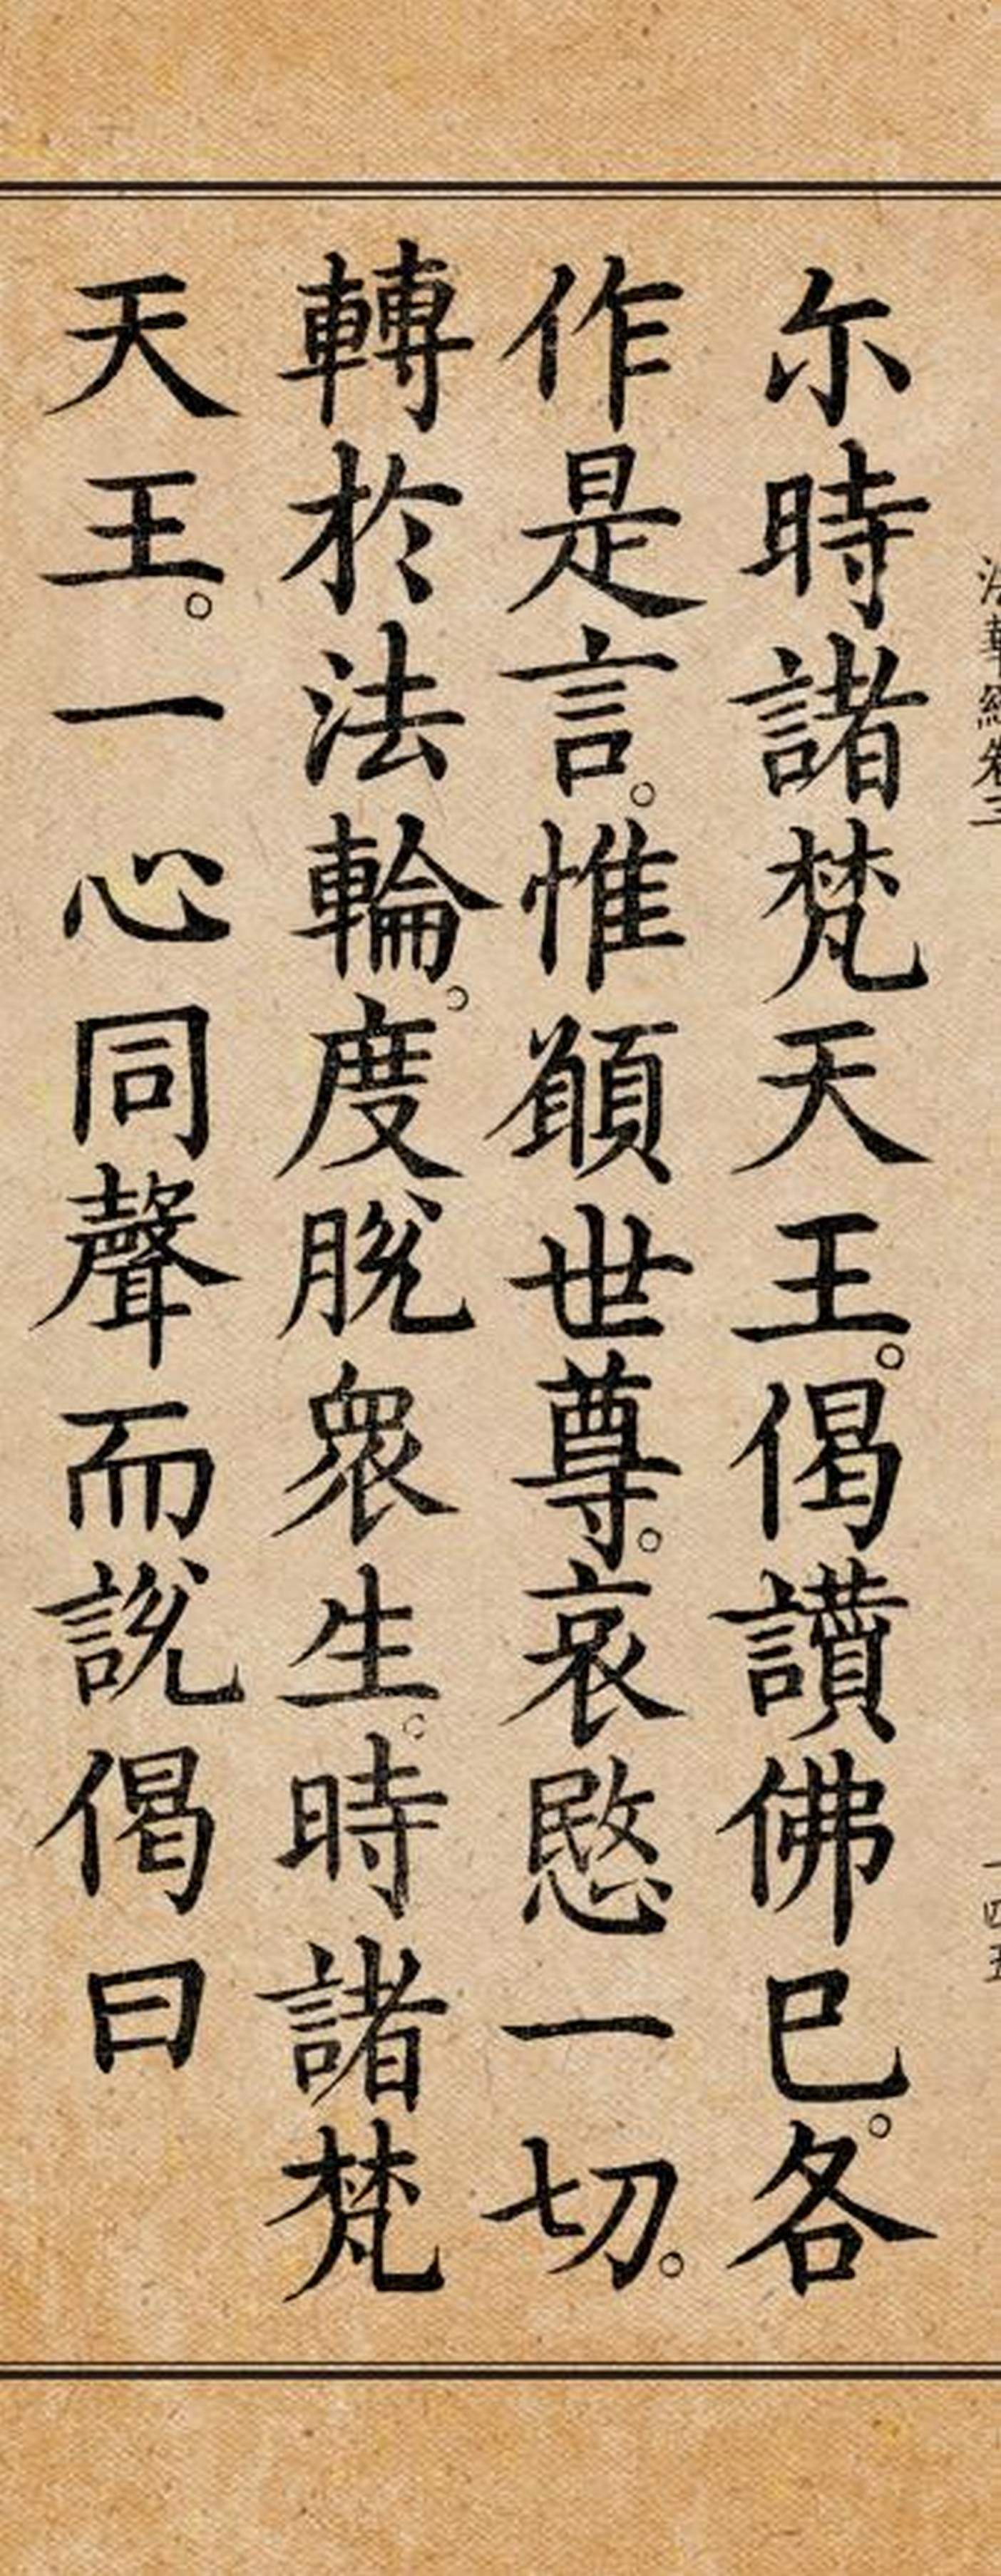 法華經卷三
一四五
尒時諸梵天王。偈讚佛已。各
作是言。惟願世尊。哀愍一切。
轉於法輪。度脫衆生。時諸梵
天王。一心同聲而說偈曰